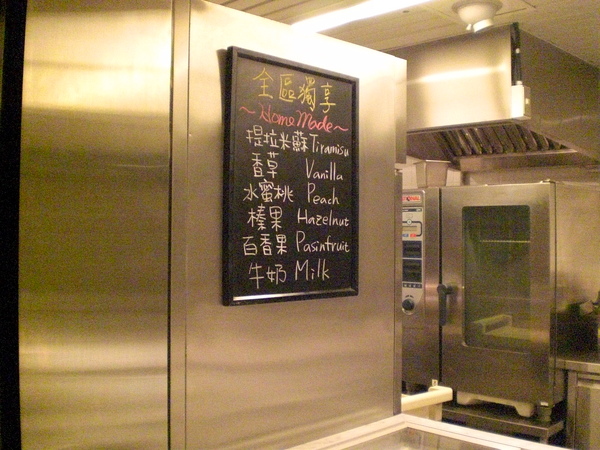 全區獨享
~Home Made~
提拉米蘇 Tiramisu
香草 Vanilla
水蜜桃 Peach
榛果 Hazelnut
百香果 Pasinfruit
牛奶 Milk